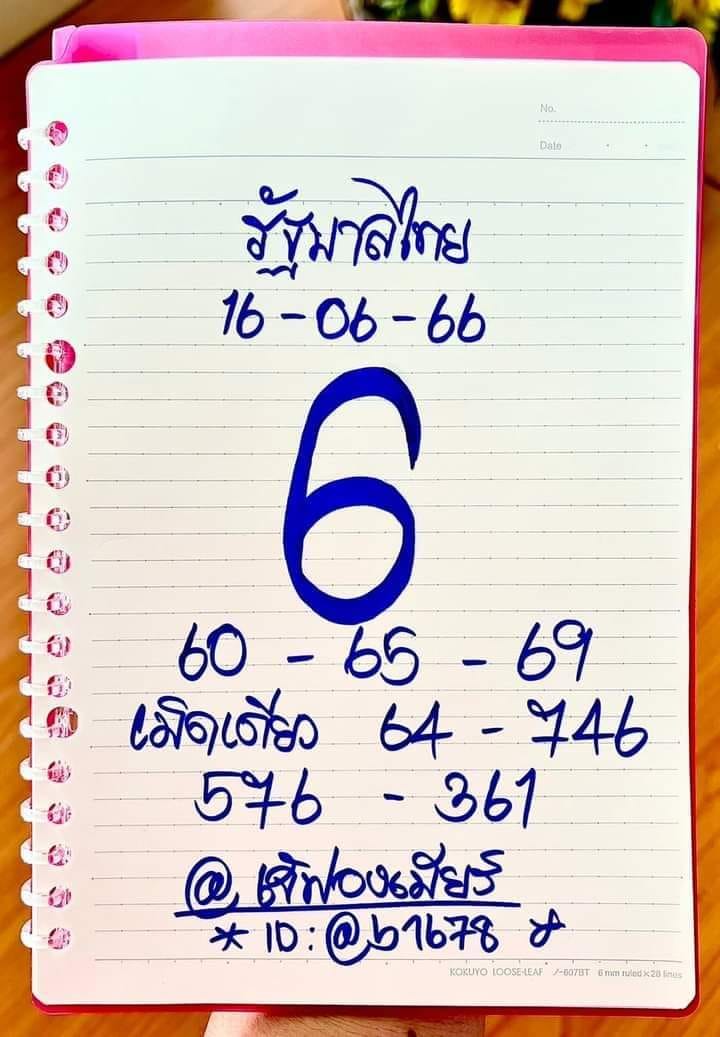 No.
Date
รัฐบาลไทย
16-06-66
6
60 - 65 - 69
เม็ดเดียว 64 - 746
576 - 361
@
* ID: @b1678 *
KOKUYO LOOSE-LEAF ノ-607BT 6 mm ruled×28 lines